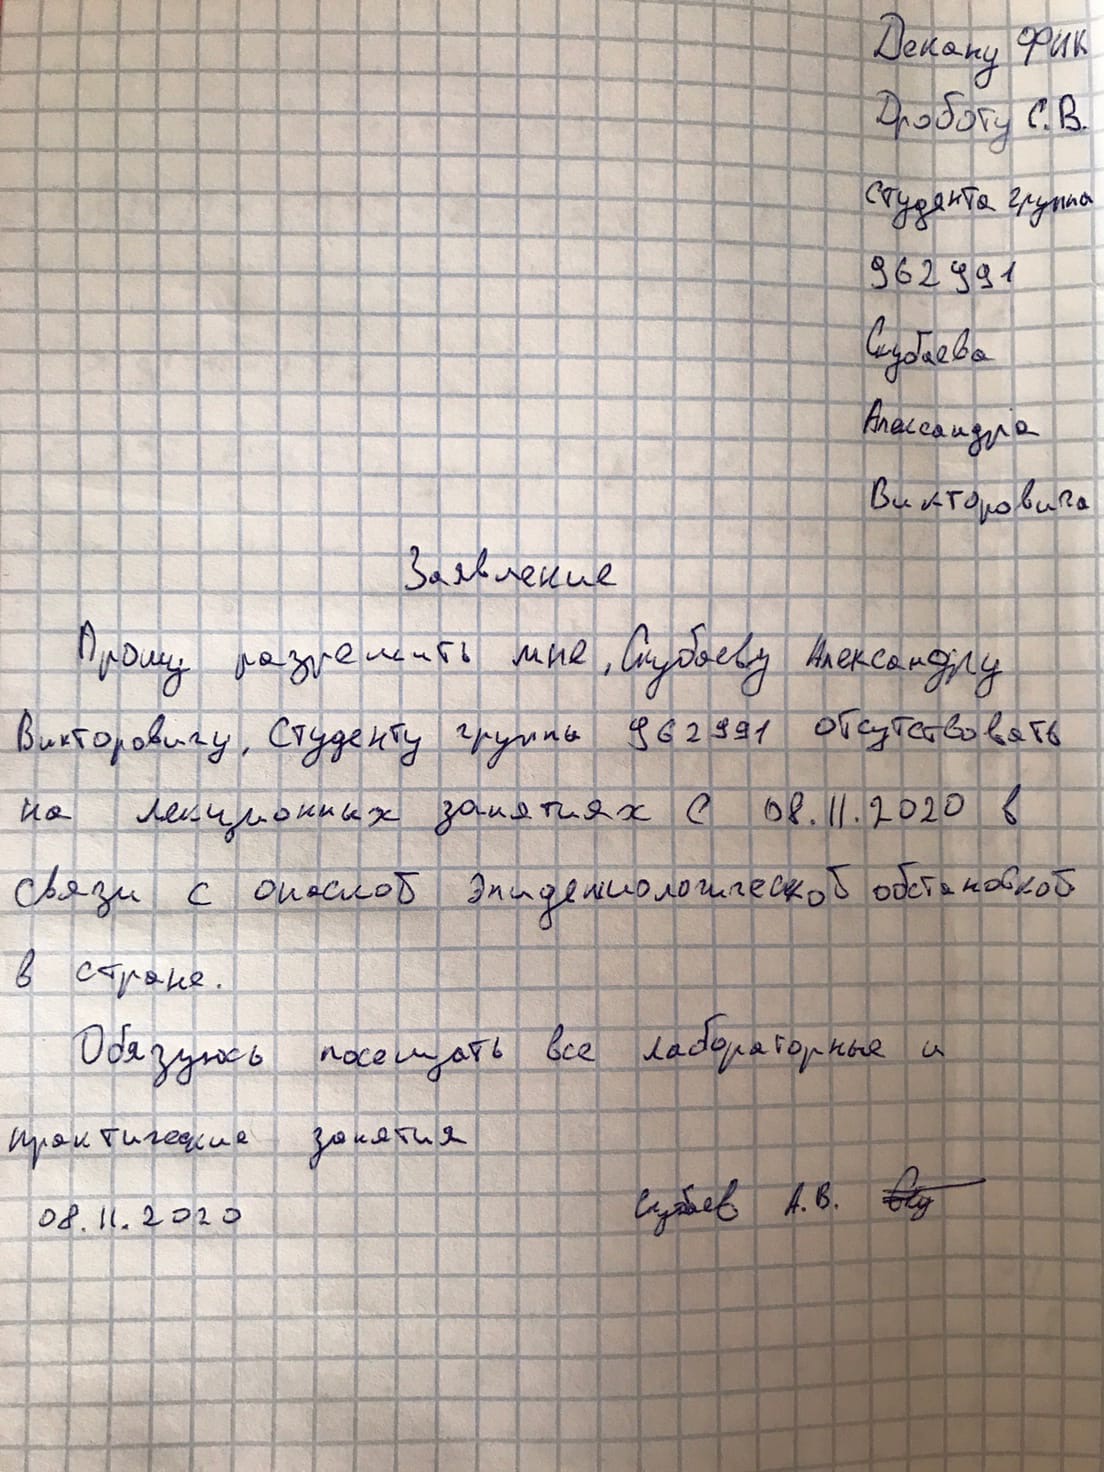 Декану ФИК
Дроботу С.В.
Студента группы
962991
Скубаева
Александра
Викторовича
Заявление
Прошу разрешить мне, Скубаеву Александру
Викторовичу, Студенту группы 962991 отсутствовать
на лекционных занятиях с 08.11.2020 в
связи с опасной эпидемиологической обстановкой
в стране.
Обязуюсь посещать все лабораторные и
практические занятия
08.11.2020 Скубаев А.В.